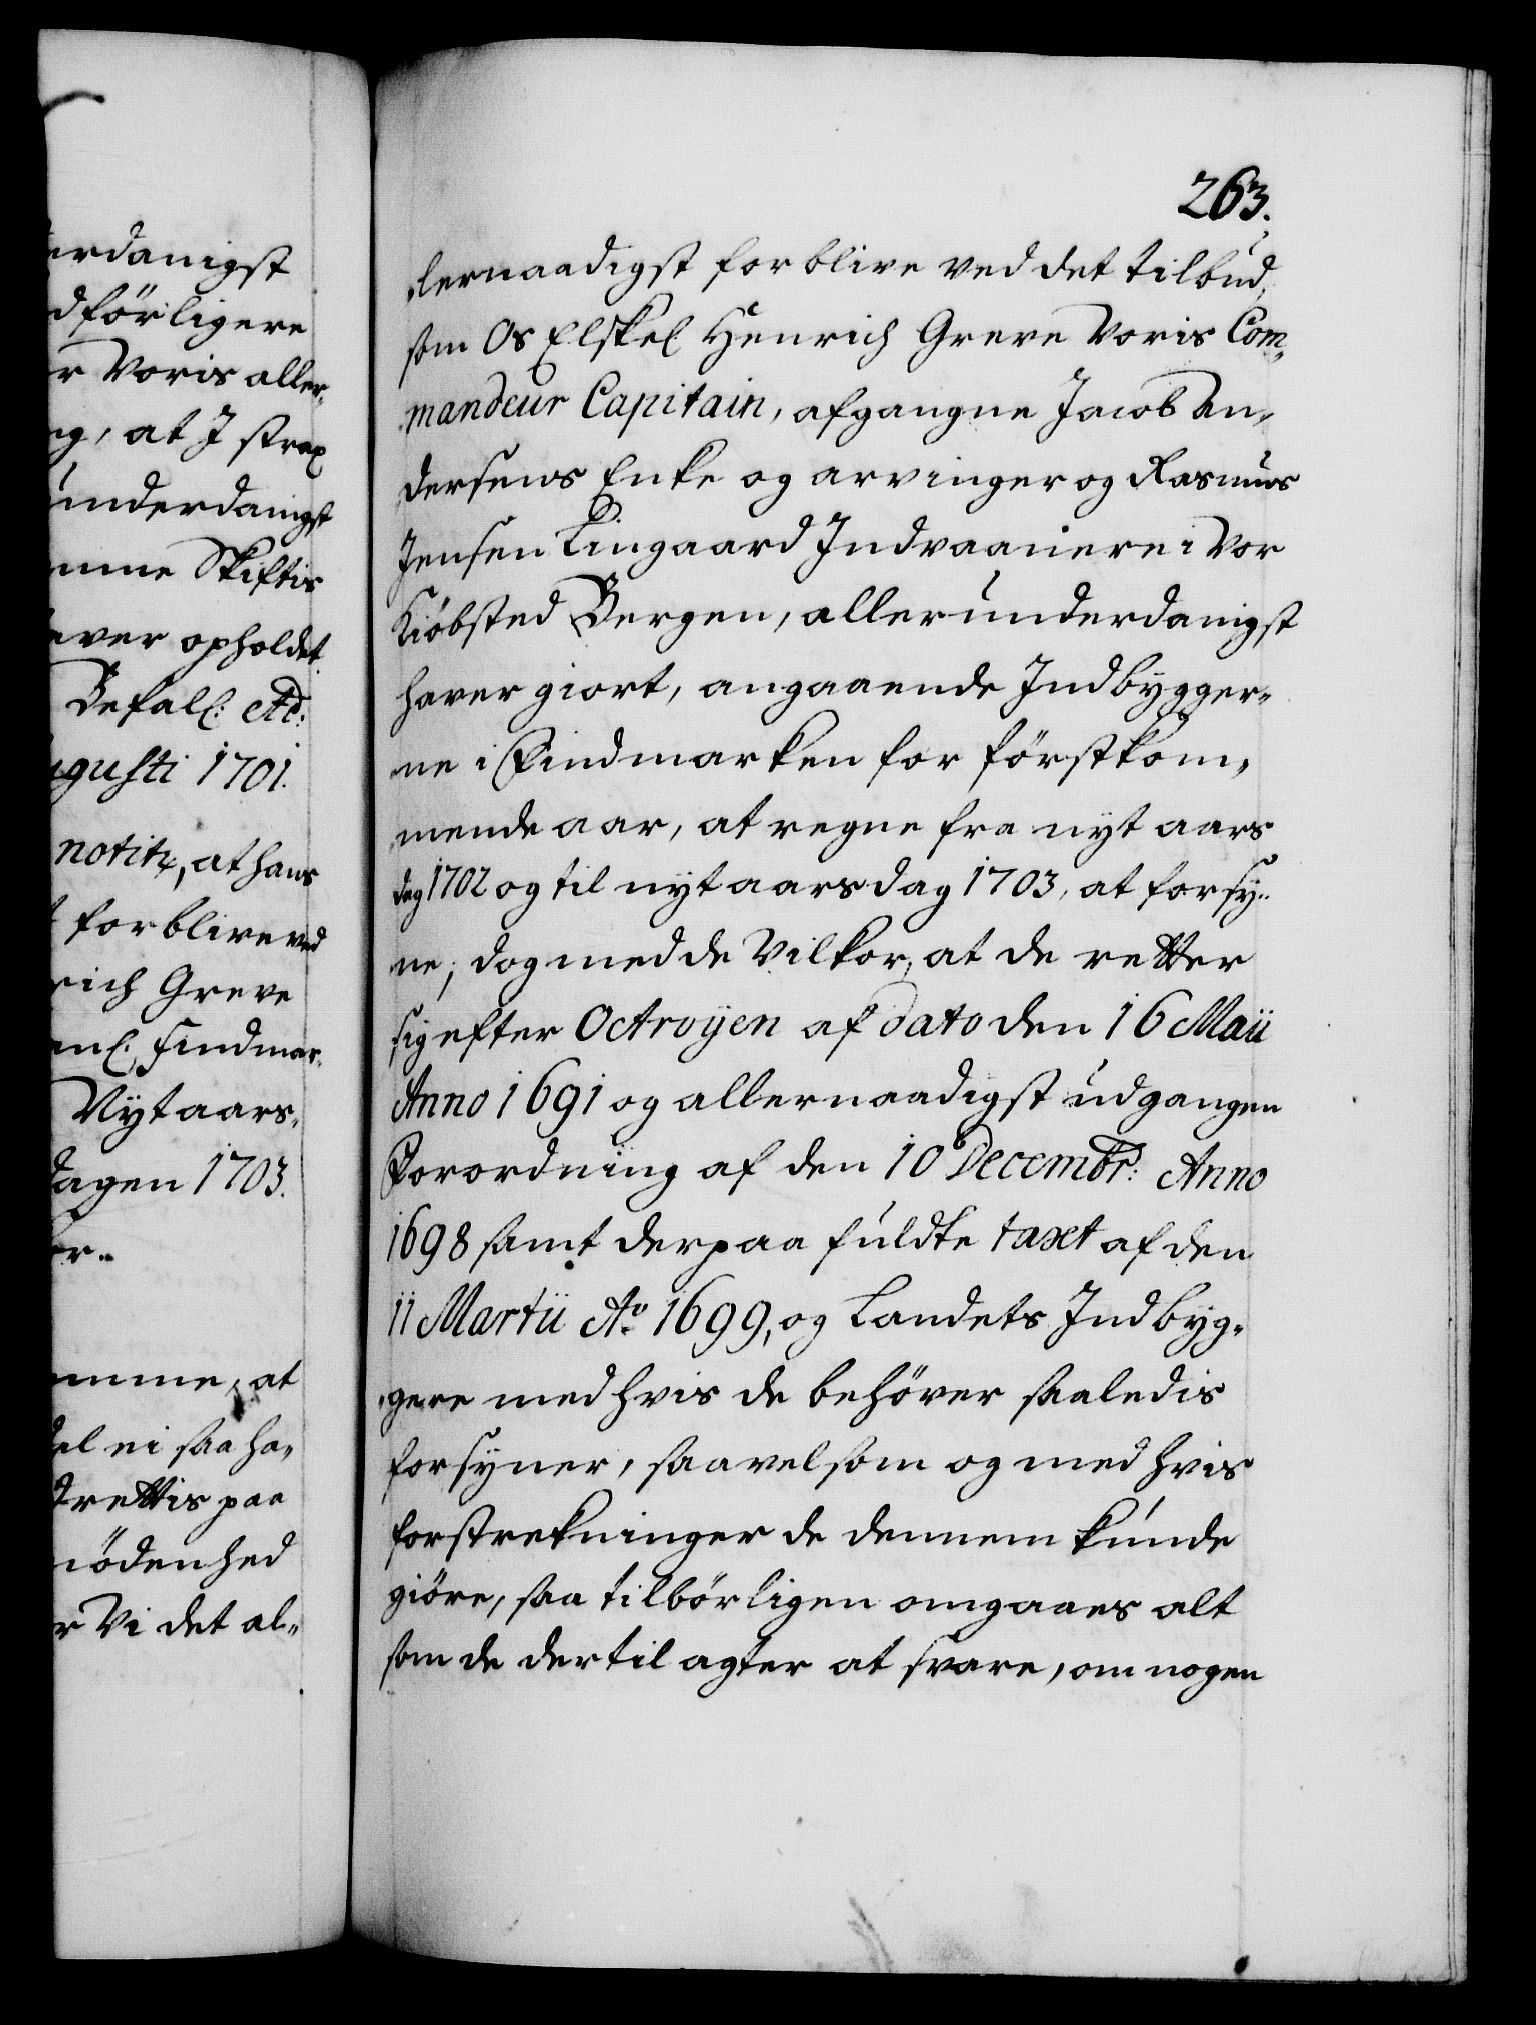 erdanigst
dförligere
r Voris aller-
ng, at I strax
underdanigst
mme Skiftis
aver opholdet
Befal: Ad:
ugusti 1701.
notitz, at hans
forblive ved
rich Greve
Findmar-
Nÿt aars-
dagen 1703.
er..
mme, at
el ei saa ha-
drettis paa
iödenhed
r Vi det al-
263.
lernaadigst forblive ved det tilbud,
som Os Elskel Henrich Greve Voris Com-
mandeur Capitain, afgangne Jacob An-
dersens Enke og arvinger og Rasmus
Jensen Lingaard Indvaanere i Vor
Kiöbsted Bergen, allerunderdanigst
haver giort, angaaende Indbygger-
ne i Findmarken for förstkom-
mende aar, at regne fra nyt aars
dag 1702 og til nÿt aars dag 1703, at forsy-
ne; dog med de Vilkor, at de retter
sig efter Octroÿen af dato den 16 Maÿ
Anno 1691 og allernaadigst udgangen
Forordning af den 10 Decembr: Anno
1698 samt derpaa fuldte taxt af den
11 Martii Ao 1699, og Landets Indbyg-
gere med hvis de behöver saaledis
forsyner, saavelsom og med hvis
forstrekninger de dennem kunde
giöre, saa tilbörligen omgaaes alt
som de dertil agter at svare, om nogen